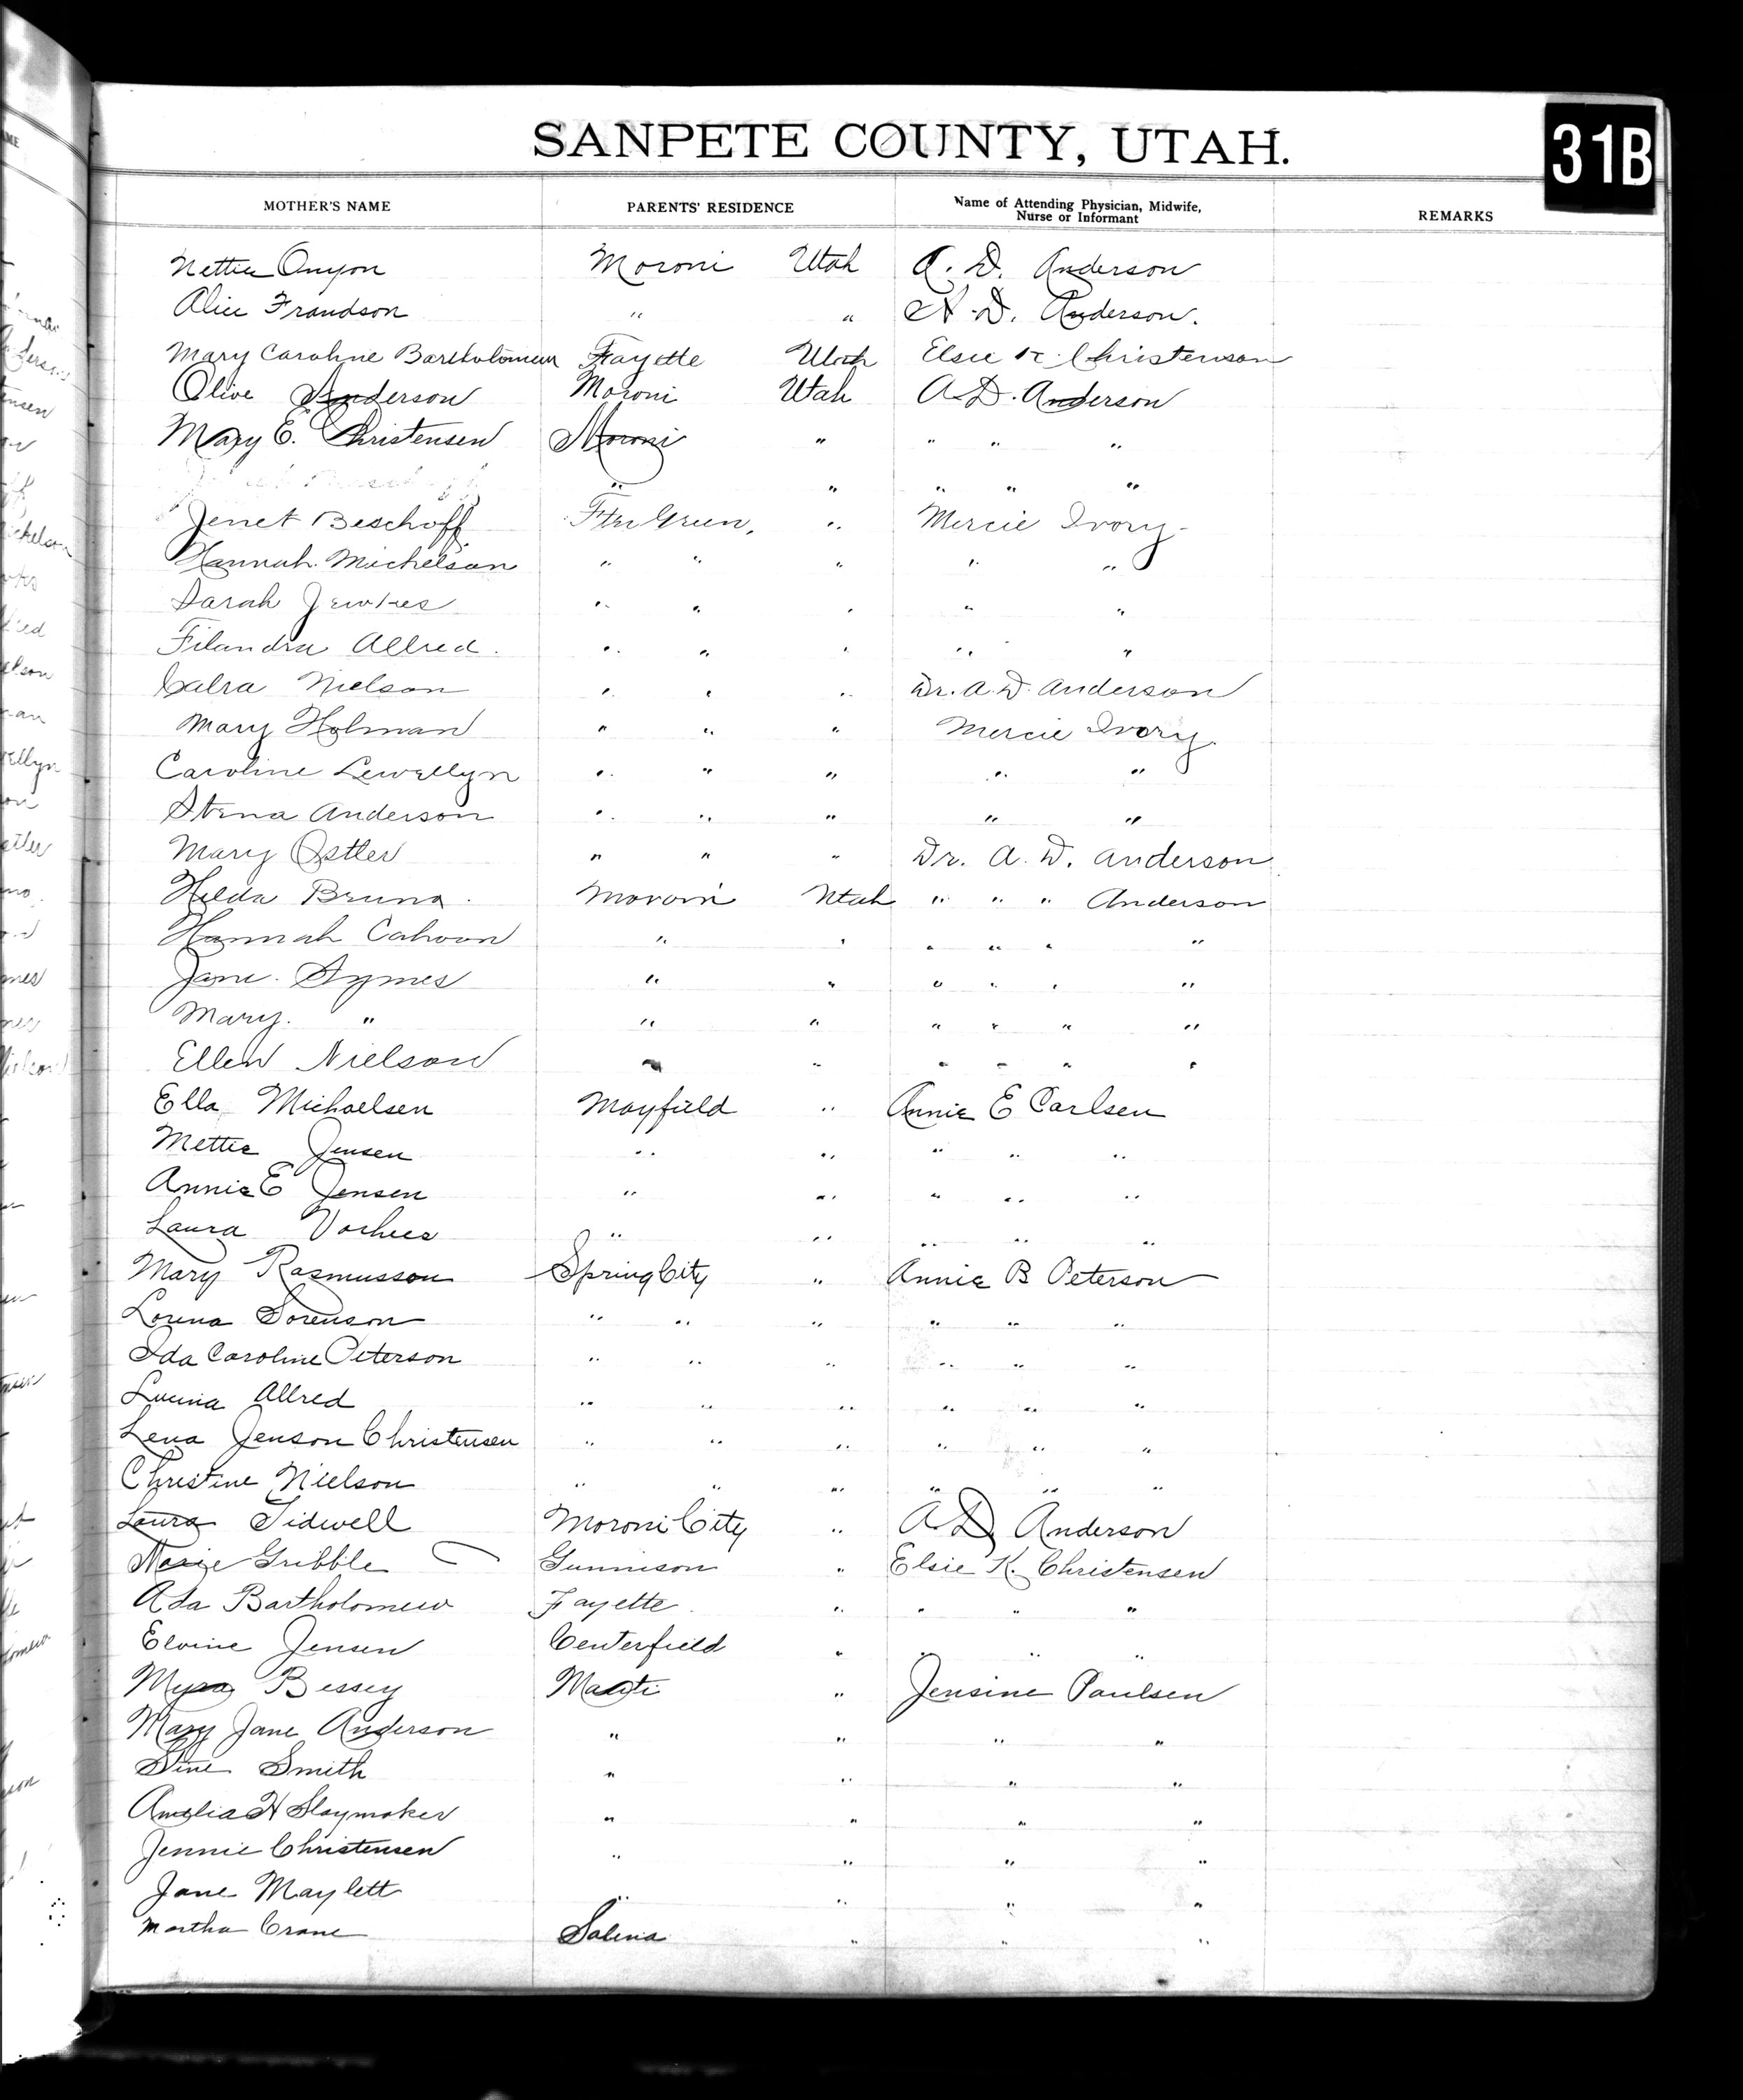 SANPETE COUNTY, UTAH.
31B
MOTHER'S NAME PARENTS' RESIDENCE Name of Attending Physician, Midwife, Nurse or Informant REMARKS
Nettie Onyon Moroni Utah A. D. Anderson
Alice Frandson " " A. D. Anderson.
Mary Caroline Bartholomew Fayette Utah Elsie K. Christenson
Olive Anderson Moroni Utah A. D. Anderson
Mary E. Christensen Moroni " " " "
" " " " "
Jenet Beschoff Ftn Green, " Mercie Ivory
Hannah Michelson " " " " "
Sarah Jewkes " " " " "
Filandra Allred. " " " " "
Calra Nielson " " " Dr. A. D. Anderson
Mary Holman " " " Mercie Ivory.
Caroline Lewellyn " " " " "
Stena Anderson " " " " "
Mary Ostler " " " Dr. A. D. Anderson
Hilda Bruno. Moroni Utah " " " Anderson
Hannah Cahoon " " " " " "
Jane. Symes " " " " " "
Mary. " " " " " " "
Ellen Nielson " " " " " "
Ella Michaelsen Mayfield " Annie E Carlsen
Mettie Jensen " " " " "
Annie E Jensen " " " " "
Laura Vorhees " " " " "
Mary Rasmusson Spring City " Annie B Peterson
Lorena Sorenson " " " " " "
Ida Caroline Peterson " " " " " "
Allred " " " " " "
Lena Jenson Christensen " " " " " "
Christine Nielson " " " " " "
Laura Tidwell Moroni City " A. D. Anderson
Gribble Gunnison " Elsie K. Christensen
Ada Bartholomew Fayette " " " "
Elvine Jensen Centerfield " " " "
Myra Bessey Manti " Jensine Paulsen
Mary Jane Anderson " " " "
Stine Smith " " " "
Amelia H Slaymaker " " " "
Jennie Christensen " " " "
Jane Maylett " " " "
Martha Crane Salina " " "